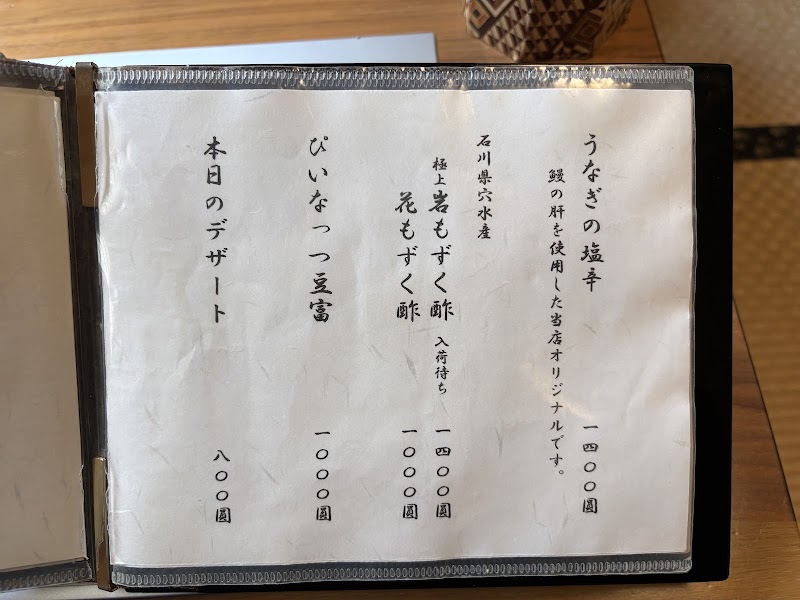 うなぎの塩辛 一四〇〇圓
鰻の肝を使用した当店オリジナルです。
石川県穴水産
極上 岩もずく酢 入荷待ち 一四〇〇圓
花もずく酢 一〇〇〇圓
ぴいなっつ豆富 一〇〇〇圓
本日のデザート 八〇〇圓